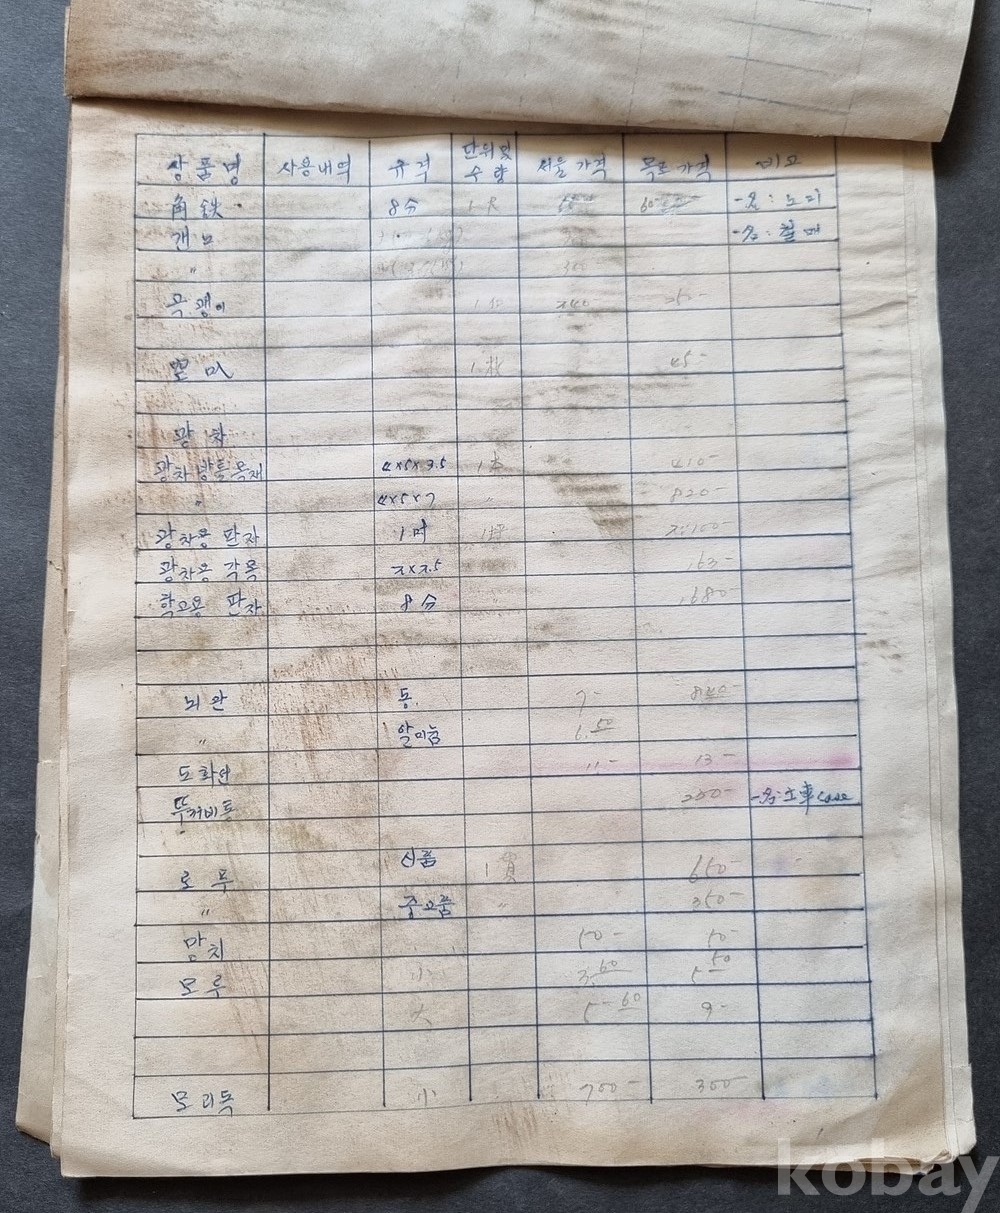 상품명 사용내역 규격 단위 및 수량 서울 가격 목포 가격 비고
角鉄 8分 1尺 60
개노
〃 300
곡괭이 240 250-
1叺 45-
광차
광차 방틀목재 4x5x3.5 1本 410-
〃 4x5x7 〃 820-
광차용 판자 1吋 1坪 2.100-
광차용 각목 2x2.5 163-
학고용 판자 8分 〃 1.680-
뇌관 동 7-
〃 알미늄 6.50
도화선 11- 13-
뚜꺼비통 250- case
로푸 신품 1貫 650-
〃 중고품 〃 350-
망치 50- 50-
모루 小 3.60 5.50
大 5-60 9-
모리독 小 700- 300-
kobay